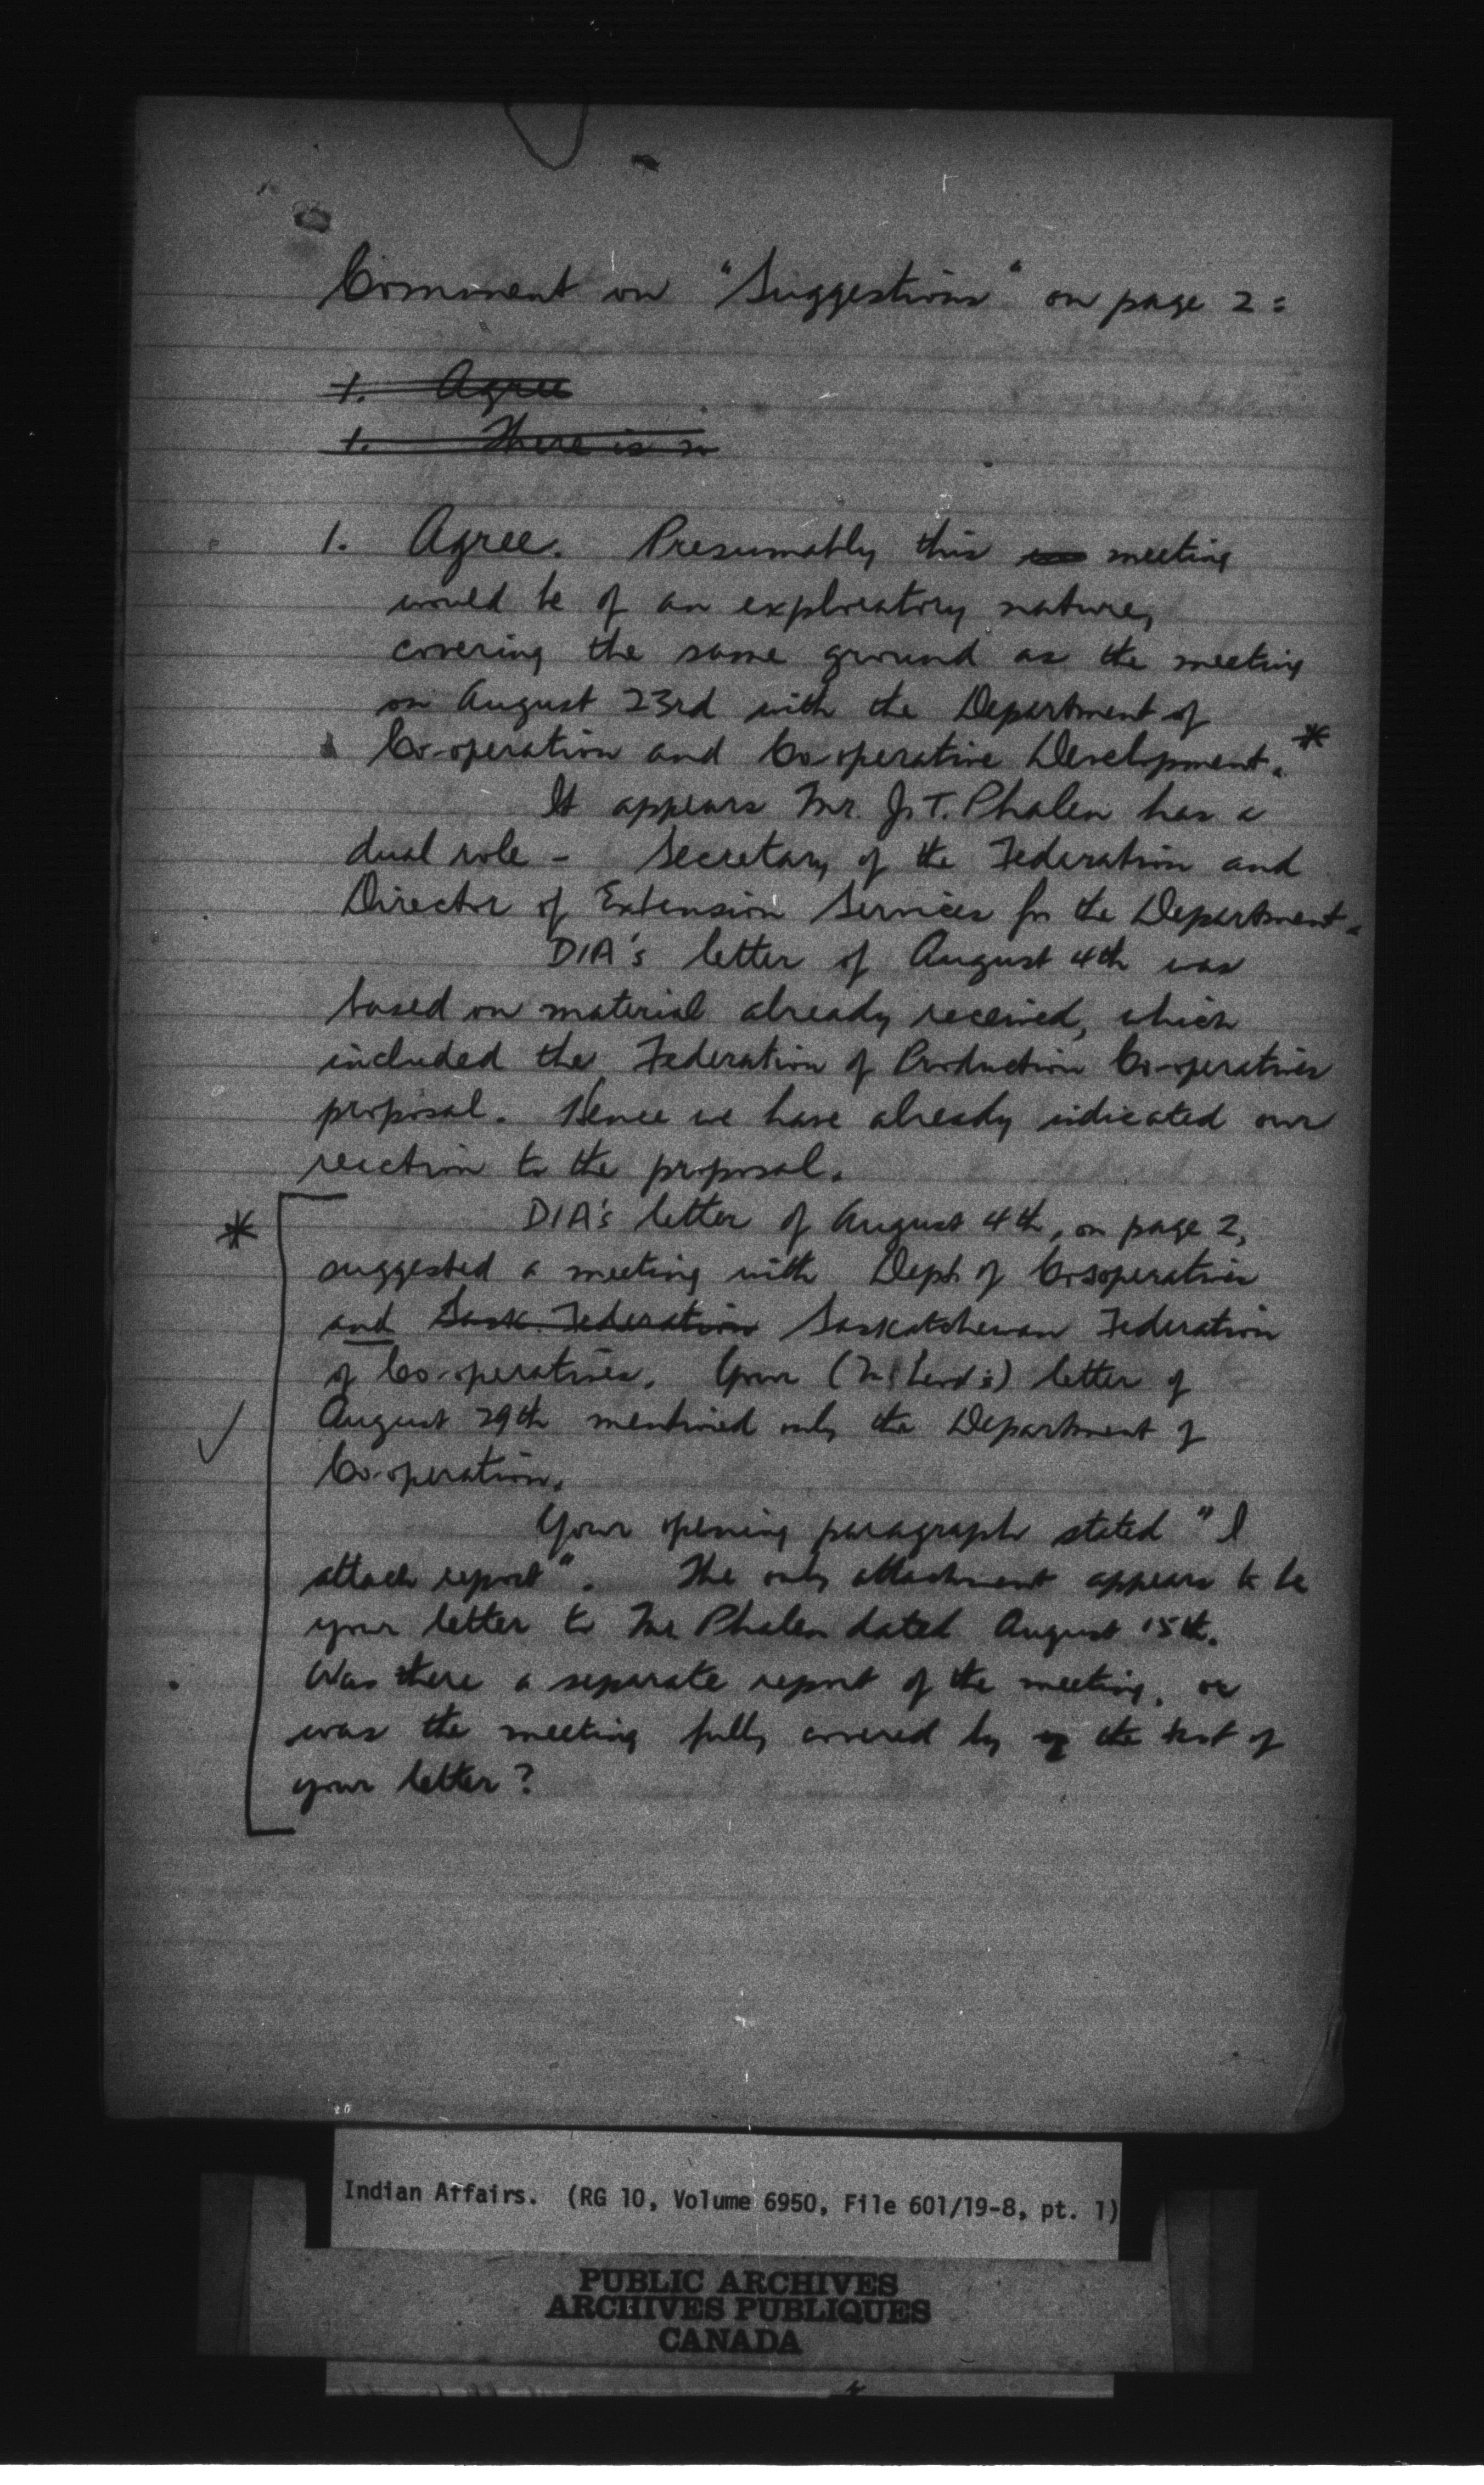 Comment on "Suggestions" on page 2:
1. Agree
1. There is n
1. Agree. Presumably this meeting
would be of an exploratory nature,
covering the same ground as the meeting
on August 23rd with the Department of
Co-operation and Co-operative Development. *
It appears Mr. J.T. Phalen has a
dual role - Secretary of the Federation and
Director of Extension Services for the Department.
DIA's letter of August 4th was
based on material already received, which
included the Federation of Production Co-operatives
proposal. Hence we have already indicated our
reaction to the proposal.
* DIA's letter of August 4th, on page 2,
suggested a meeting with Dept. of Co-operatives
and Sask. Federation Saskatchewan Federation
of Co-operatives. Your letter of
August 29th mentioned only the Department of
Co-operation.
Your opening paragraph stated "I
attach report". The only attachment appears to be
your letter to Mr. Phalen dated August 15th.
Was there a separate report of the meeting, or
was the meeting fully covered by the text of
your letter?
20
Indian Affairs. (RG 10, Volume 6950, File 601/19-8, pt. 1)
PUBLIC ARCHIVES
ARCHIVES PUBLIQUES
CANADA